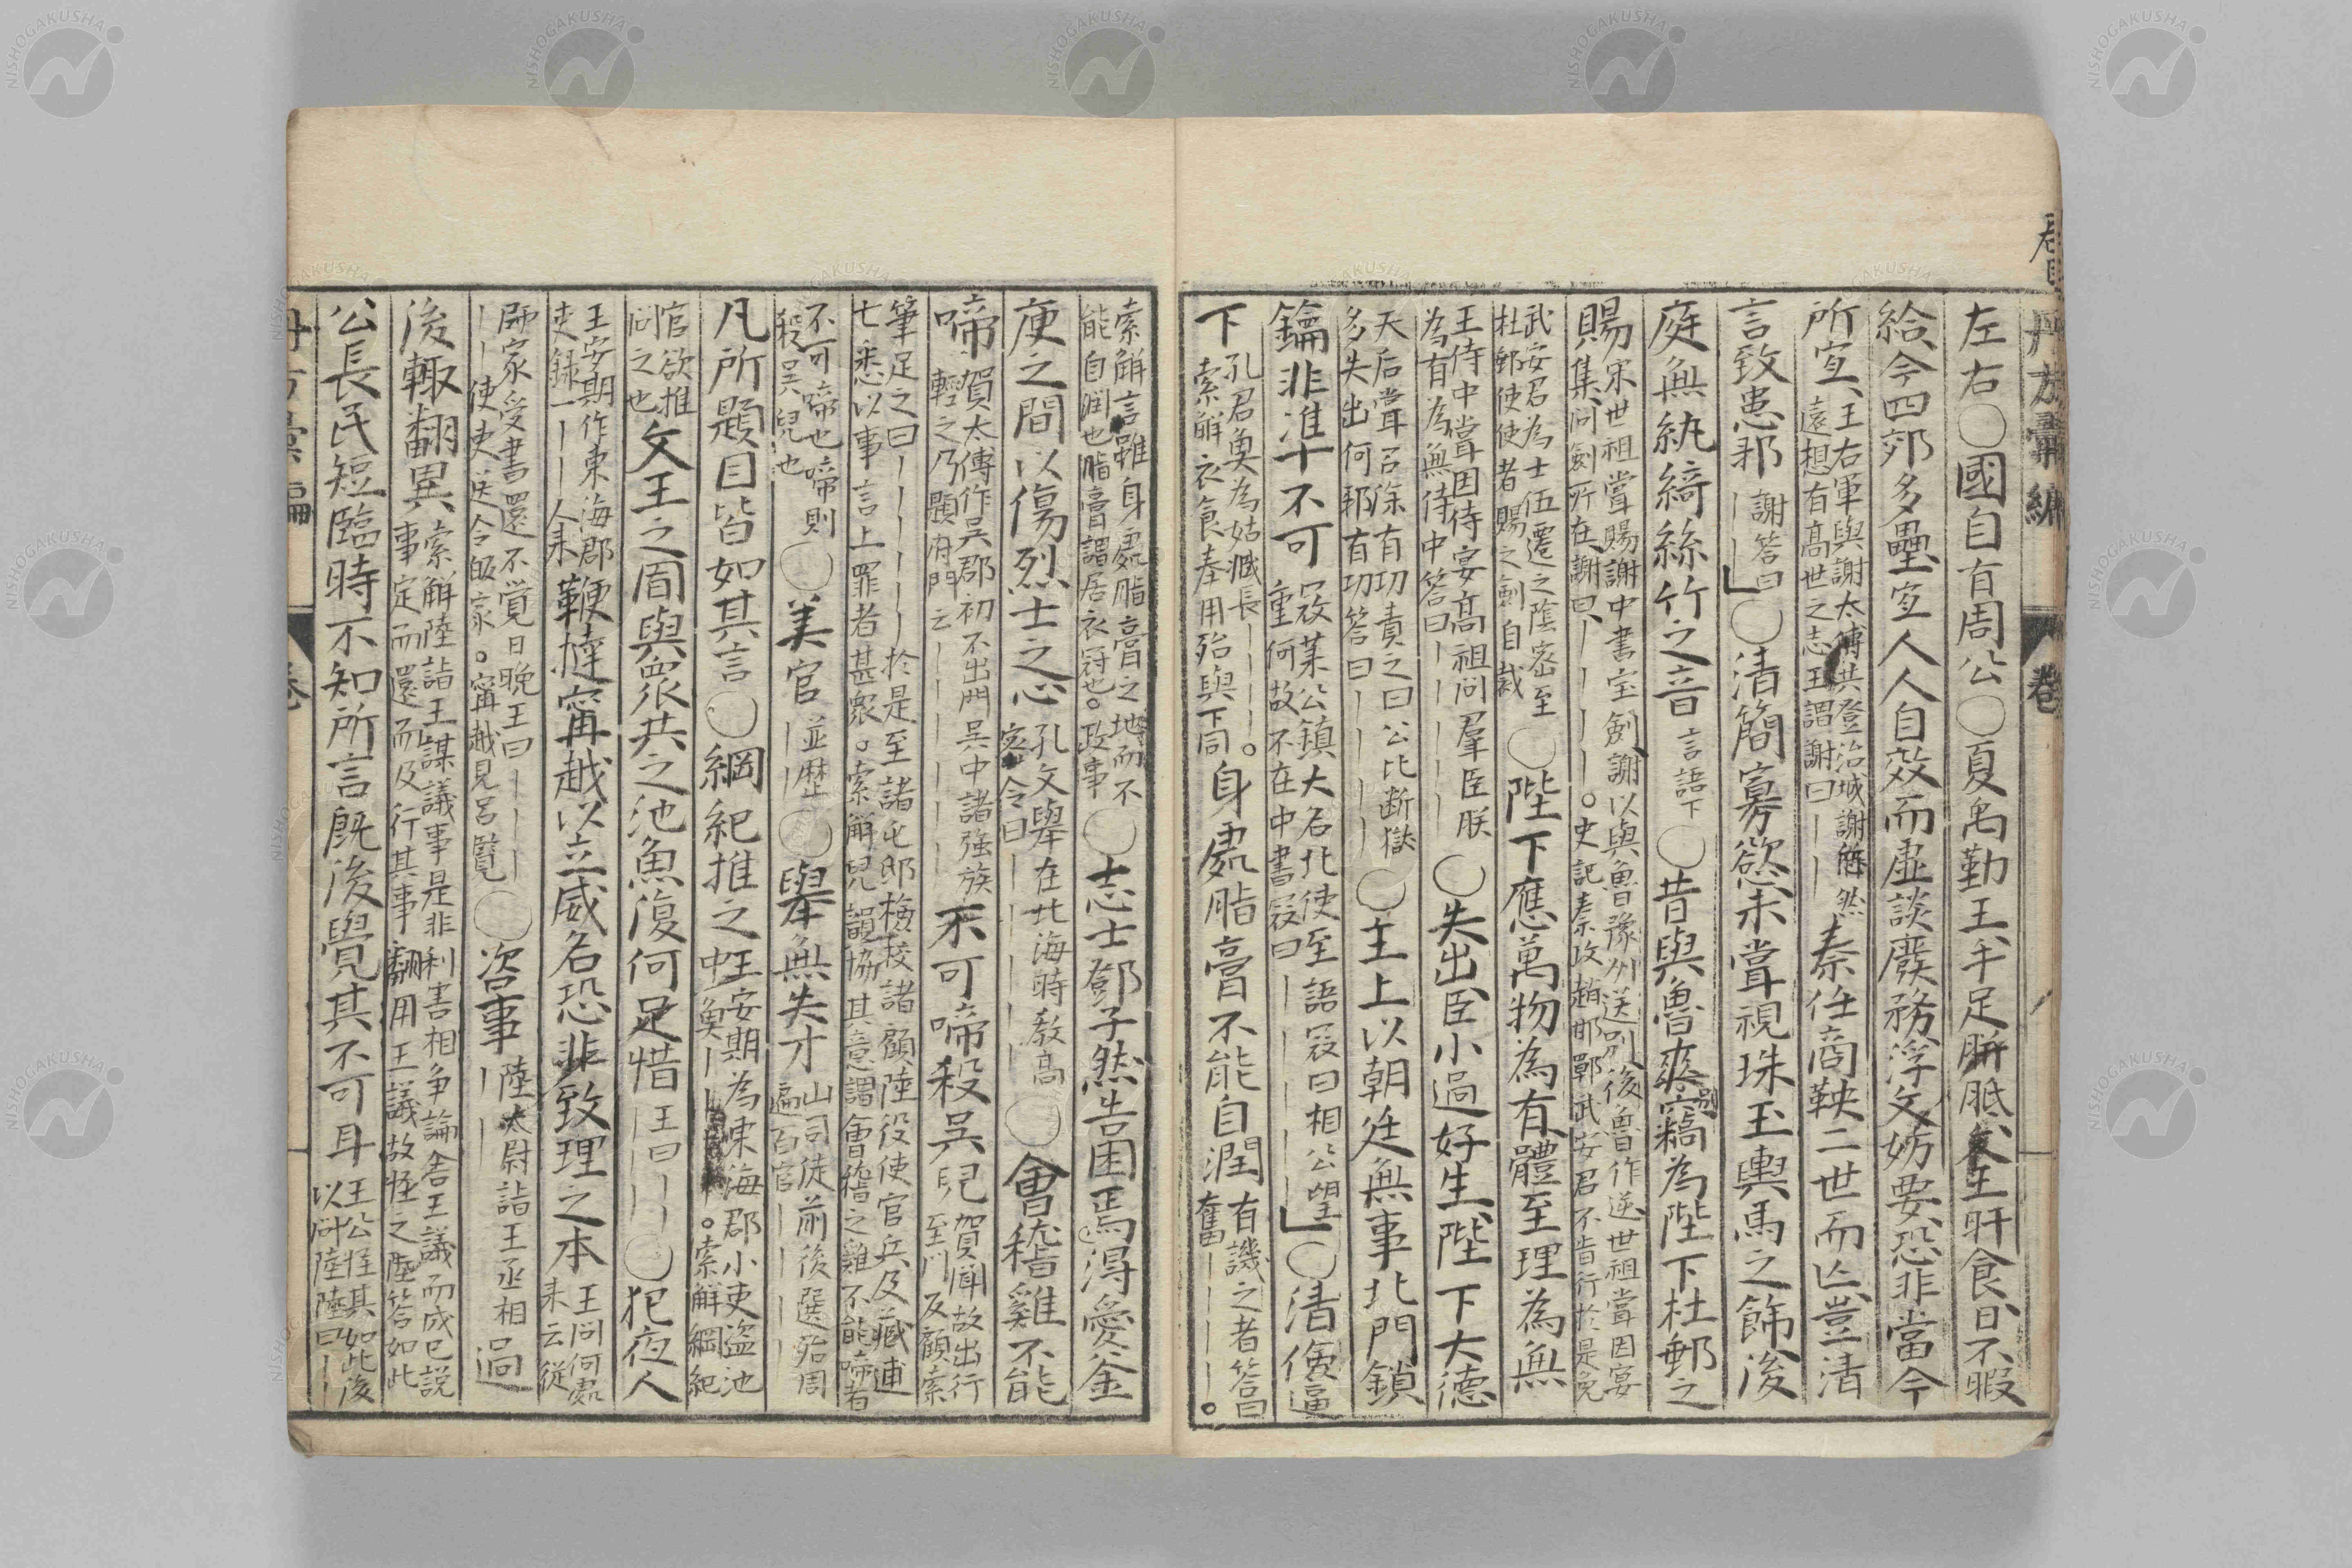 丹方彙編
卷
左右○國自有周公○夏禹勤王手足胼胝文王旰食日不暇
給今四郊多壘宜人人自效而虛談廢務浮文妨要恐非當今
所宜
王右軍與謝太傅共登冶城謝悠然
遠想有高世之志王謂謝曰——
秦任商鞅二世而亡豈清
言致患邪
謝答曰
——
○清簡寡慾未嘗視珠玉輿馬之飾後
庭無紈綺絲竹之音
言語下
○昔與魯爽別竊為陛下杜郵之
賜
宋世祖嘗賜謝中書宝劍謝以與魯豫州送別後魯作逆世祖嘗因宴
集問劍所在謝曰————。史記秦政趙邯鄲武安君不肯行於是免
武安君為士伍遷之陰密至
杜郵使使者賜之劍自裁
○陛下應萬物為有體至理為無
王侍中嘗因侍宴高祖問羣臣朕
為有為無侍中答曰————
○失出臣小過好生陛下大德
天后嘗召徐有功責之曰公比断獄
多失出何耶有功答曰————
○主上以朝廷無事北門鎖
鑰非准十不可
冦萊公鎮大名北使至語冦曰相公望
重何故不在中書冦曰————
○清儉逼
下
孔君奐為姑臧長———。
索解衣食奉用殆與下同
身處脂膏不能自潤
有譏之者答曰
奮————。
索解言雖身處脂膏之地而不
能自潤也脂膏謂居衣冠也。政事
○志士鄧子然告困焉得愛釜
庾之間以傷烈士之心
孔文舉在北海時教高
密令曰————
○會稽雞不能
啼
賀太傅作吳郡初不出門吳中諸強族
輕之乃題府門云————
不可啼殺吳兒
賀聞故出行
至門反顧索
筆足之曰—————於是至諸屯邸檢校諸顧陸役使官兵及藏逋
七悉以事言上罪者甚衆。索解兒韻協其意謂會稽之雞不能啼者
不可啼也啼則
殺吳兒也
○美官
並歴
——
○舉無失才
山司徒前後選殆周
遍百官————
凡所題目皆如其言○綱紀推之
王安期為東海郡小吏盗池
中魚——。索解綱紀
官欲推
问之也
文王之囿與眾共之池魚復何足惜
王曰——
————
○犯夜人
王安期作東海郡
吏録一——人来
鞭撻甯越以立威名恐非致理之本
王问何處
来云従
師家受書還不覚日晚王曰———
——使吏送令皈家。甯越見呂覧
○咨事
陸太尉詣王丞相
———
過
後輙翻異
索解陸詣王謀議事是非利害相争論舍王議而成已説
事定而還而及行其事翻用王議故怪之陸答如此
公長民短臨時不知所言既後覺其不可耳
王公怪其如此後
以问陸陸曰——
卷